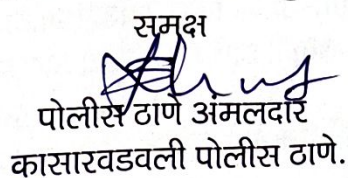 समक्ष
पोलीस ठाणे अंमलदार
कासारवडवली पोलीस ठाणे.